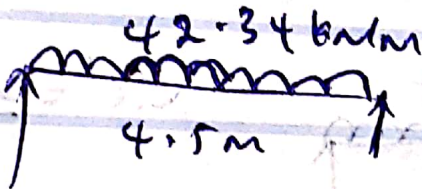 42.34 kN/m
4.5m